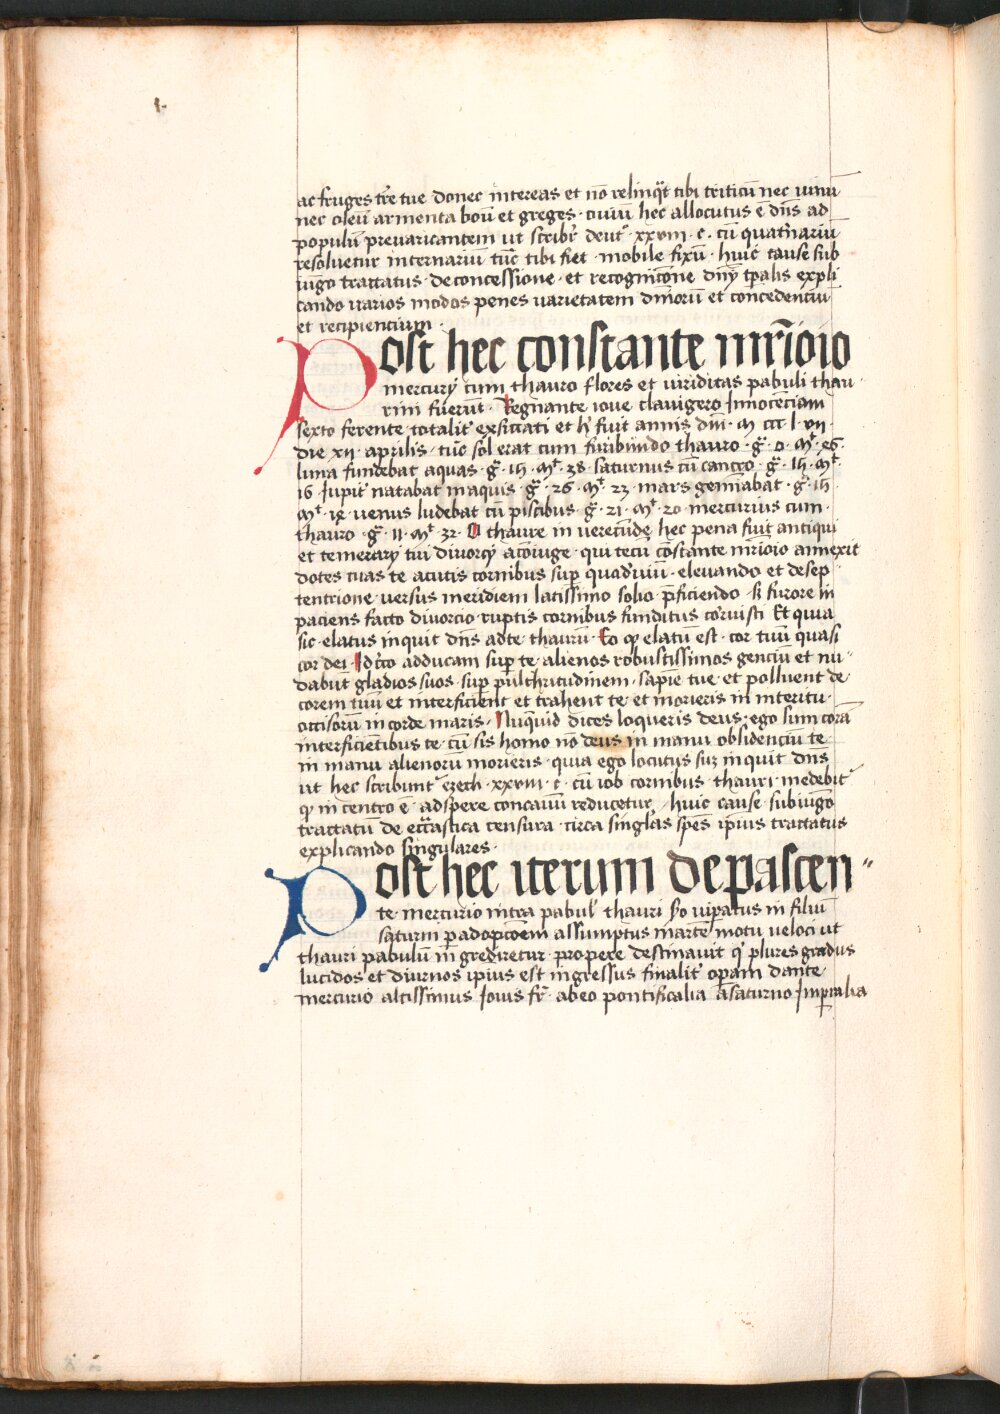 ac fruges tr̄e tue donec intereas et nō relinq̄t tibi triticū nec uinū
nec oleū armenta boū et greges · ouiū hec allocutus ē dn̄s ad
populū preuaricantem ut scribr̄ deut͛ · xxviii · c · cū quat͛nariū
resoluetur in ternariū tūc tibi fiet · mobile fixū · huic cause sub
iugo tractatus · de concessione · et recognitōne dn̄ȳ tp̄alis expli
cando uarios modos penes uarietatem dn̄iorū et concedenciū
et recipiencium ·
Post hec constante mr̄ioio
mercurÿ cum thauro flores et uiriditas pabuli thau
rini fuerūt · Regnante ioue clauigero Innocenciam
sexto ferente totalit͛ exsiccati et h̄ fuit annis dn̄i · m ccc l · vii ·
die xii · aprilis · tūc sol erat cum furibūndo thauro · g͛ · 0 · m͛ · 26 ·
luna fundebat aquas · g͛ · 1h · m͛ · 38 · saturnus cū cancro · g͛ · 1h · m͛ ·
16 · Iupit͛ natabat in aquis · g͛ · 26 · m͛ · 23 · mars gemiābat · g͛ · 1h ·
m͛ · 18 · uenus ludebat cū piscibus g͛ · 21 · m͛ · 20 mercurius cum ·
thauro · g͛ · 11 · m͛ · 32 · O thaure in uerecūnde hec pena fuit antiqui
et temerarÿ tui diuorcÿ a cōiuge · qui tecū cōstante mr̄ioio annexit
dotes tuas te acutis cornibus sup̄ quadriuiū · eleuando et de sep
tentrione · uersus meridiem latissimo solio · p̄ficiendo · s̄ furore in
paciens facto diuorcio · ruptis cornibus funditus corruisti Et quia
sic · elatus inquit dn̄s ad te · thaurū · Eo q̄ elatū est · cor tuū quasi
cor dei · Idc͛co adducam sup̄ te · alienos robustissimos genciū et nu
dabūt gladios suos · sup̄ pulchritudinem · sapīe tue · et polluent de
corem tuū et interficient et trahent te · et morieris in interitu ·
occisorū in corde maris · Nūquid dices loqueris deus · ego sum corā
interficiētibus te · cū sis homo nō deus in manu oblidenciū te ·
in manu alienorū morieris · quia ego locutus sū inquit dn̄s
ut hec scribunt͛ ezech · xxviii · c · cū iob cornibus · thauri · medebit͛
q̄ in centro ē · ad spere concauū reducetur / huic cause · sub iūgo
tractatū de ecc̄astica censura · circa sing͛las sp̄es ip̄ius tractatus
explicando singulares ·
Post hec iterum depascen
te · mercurio intra pabul͛ thauri s̄o uip̄atus in filiū
saturni p̄ adopcōem assumptus marte motu ueloci ut
thauri pabulū in grediretur · propere destinauit q̄ plures gradus
lucidos et diurnos ip̄ius est ingressus finalit͛ op̄am dante ·
mercurio altissimus Iouis fr̄ · ab eo pontificalia a saturno Imp̄ialia